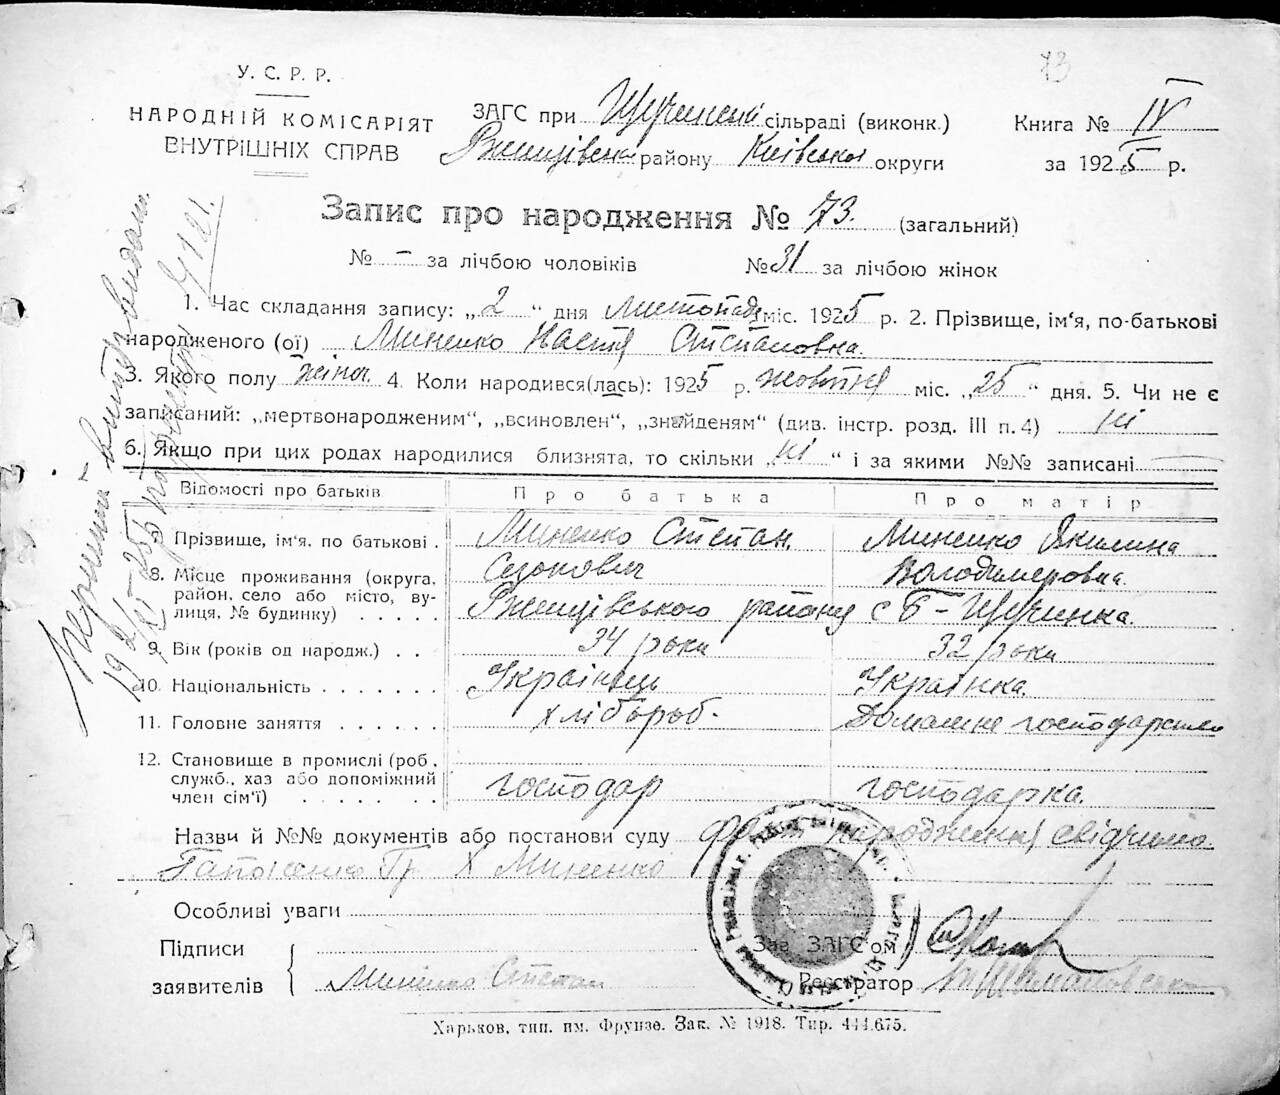 73
У. С. Р. Р.
НАРОДНІЙ КОМІСАРІЯТ
ВНУТРІШНІХ СПРАВ
ЗАГС при Щучинські сільраді (виконк.)
Ржищівськ району Київської округи
Книга № IV
за 1925 р.
Запис про народження № 73. (загальний)
№ – за лічбою чоловіків № 31 за лічбою жінок
1. Час складання запису: „2“ дня Листопада міс. 1925 р. 2. Прізвище, ім‘я, по-батькові
народженого (ої) Миненко Настя Степановна.
3. Якого полу жіноч. 4. Коли народився(лась): 1925 р. жовтня міс. „25“ дня. 5. Чи не є
записаний: „мертвонародженим“, „всиновлен“, „знайденям“ (див. інстр. розд. III п. 4) ні
6. Якщо при цих родах народилися близнята, то скільки „ні“ і за якими №№ записані
Відомості про батьків Про батька Про матір
Прізвище, ім‘я. по батькові . Миненко Степан. Миненко Якилина
Созонович Володимеровна.
8. Місце проживання (округа, район, село або місто, вулиця, № будинку) . . . . .
Ржищівського району с Б-Щучинка.
9. Вік (років од народж.) . . 34 роки 32 роки
10. Національність . . . . . . . Українець Українка.
11. Головне заняття . . . . . хлібороб. Домашне господарство
12. Становище в промислі (роб., служб., хаз або допоміжний член сім‘ї) . . . . . . .
господар господарка.
Назви й №№ документів або постанови суду факт народження свідчимо.
Гр. Х Миненко
Особливі уваги
Підписи
заявителів
Миненко Степан
Зав ЗАГС‘ом
Реєстратор
Харьков, тип. им. Фрунзе. Зак. № 1918. Тир. 444.675.